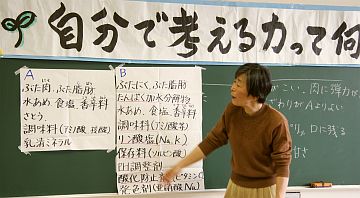 自分で考える力って何
A
ぶた肉、ぶた脂肪
水あめ、食塩、香辛料
さとう、
調味料(アミノ酸、核酸)
乳清ミネラル
B
ぶたにく、ぶた脂肪
たんぱく加水分解物
水あめ、食塩、香辛料
調味料(アミノ酸等)
リン酸塩(Na、K)
保存料(ソルビン酸)
PH調整剤
酸化防止剤(ビタミンC)
発色剤(亜硝酸Na)
こい、肉に弾力が
ざわりがAよりよい
口に残る
甘さ